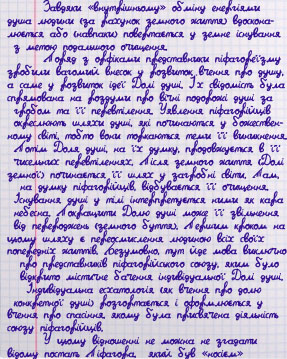 Завдяки «внутрішньому» обміну енергіями
душа людини (за рахунок земного життя) вдоскона-
люється або (навпаки) повертається у земне існування
з метою подальшого очищення.
Поряд з орфіками представники піфагореїзму
зробили вагомий внесок у розвиток вчення про душу,
а саме у розвиток ідеї Долі душі. Їх свідомість була
спрямована на роздуми про вічні подорожі душі за
гробом та її перевтілення. Уявлення піфагорійців
окреслюють шляхи душі, які починаються у божествен-
ному світі, тобто вони торкаються теми її виникнення.
Потім Доля душі, на їх думку, продовжується в її
численних перевтіленнях. Після земного життя (Долі
земної) починається її шлях у загробні світи. Там,
на думку піфагорійців, відбувається її очищення.
Існування душі у тілі інтерпретується ними як кара
небесна. Покращити Долю душі може її звільнення
від перероджень (земного буття). Першим кроком на
цьому шляху є переосмислення людиною всіх своїх
попередніх життів. Безумовно, тут йде мова виключно
про представників піфагорійського союзу, яким було
відкрито містичне бачення індивідуальної Долі душі.
Індивідуальна есхатологія (як вчення про долю
конкретної душі) розгортається і оформлюється у
вчення про спасіння, якому була присвячена діяльність
союзу піфагорійців.
У цьому відношенні не можна не згадати
відому постать Піфагора, який був «носієм»